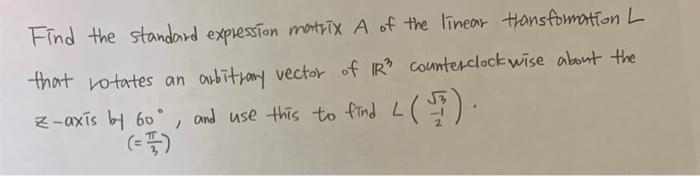 Find the standard expression matrix A of the linear transformation L
that rotates an arbitrary vector of ℝ³ counterclockwise about the
z-axis by 60°, and use this to find L(√3 -1 2).
(=π/3)